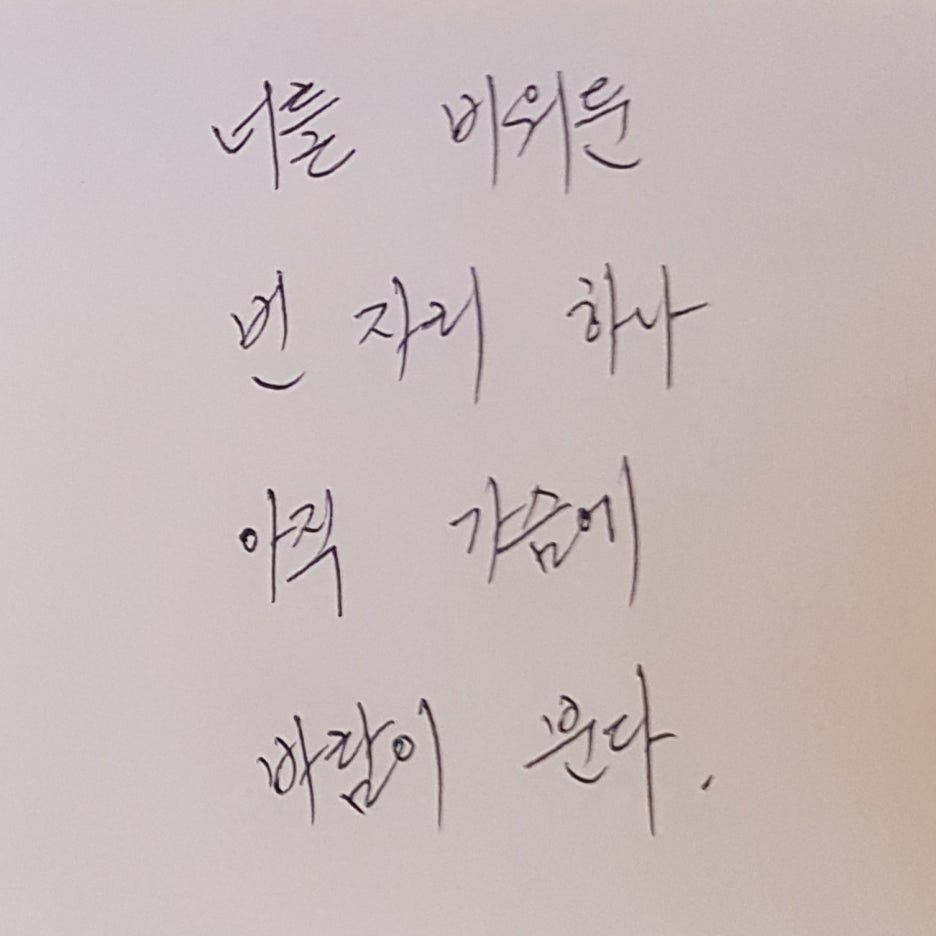 너를 비워둔
빈 자리 하나
아직 가슴에
바람이 분다.